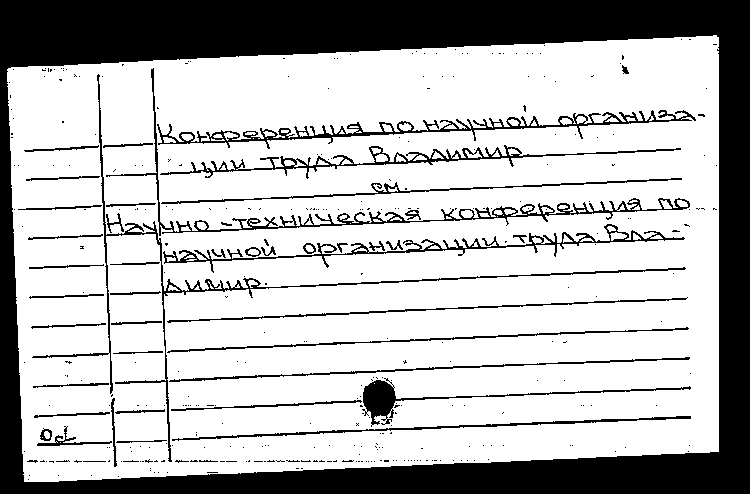 Конференция по научной организа-
ции труда Владимир.
см.
Научно-техническая конференция по
научной организации труда Вла-
димир.
Od